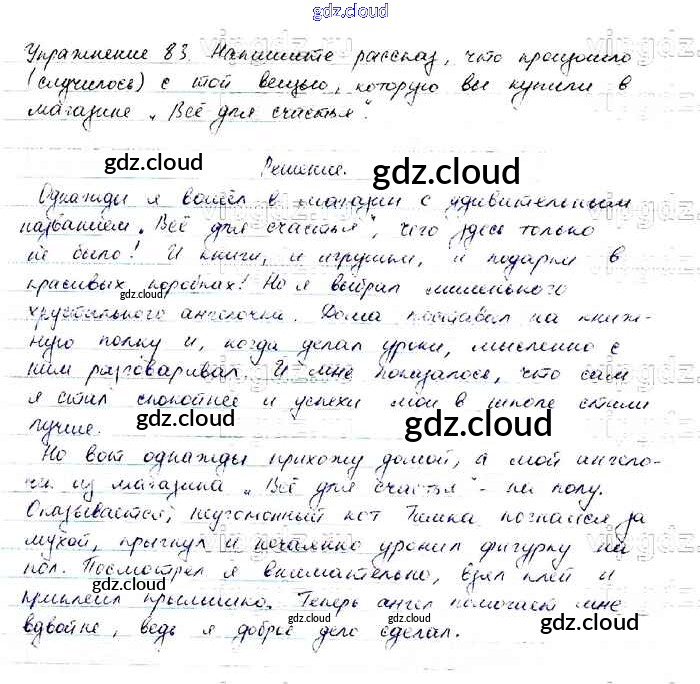 gdz.cloud
Упражнение 83. Напишите рассказ, что произошло
(случилось) с той вещью, которую вы купили в
магазине „Всё для счастья".
gdz.cloud
Решение.
gdz.cloud
Однажды я вошёл в магазин с удивительным
названием „Всё для счастья", чего здесь только
не было! И книги, и игрушки, и подарки в
красивых коробках! Но я выбрал миленького
gdz.cloud
gdz.cloud
хрустального ангелочка. Дома поставил на книж-
ную полку и, когда делал уроки, мысленно с
ним разговаривал. И мне показалось, что сам
я стал спокойнее и успехи мои в школе стали
gdz.cloud
gdz.cloud
лучше.
Но вот однажды прихожу домой, а мой ангело-
чек из магазина „Всё для счастья" - на полу.
Оказывается, неугомонный кот Тимка погнался за
мухой, прыгнул и нечаянно уронил фигурку на
пол. Посмотрел я внимательно, взял клей и
gdz.cloud
gdz.cloud
приклеил крылышко. Теперь ангел помогает мне
вдвойне, ведь я доброе дело сделал.
gdz.cloud
gdz.cloud